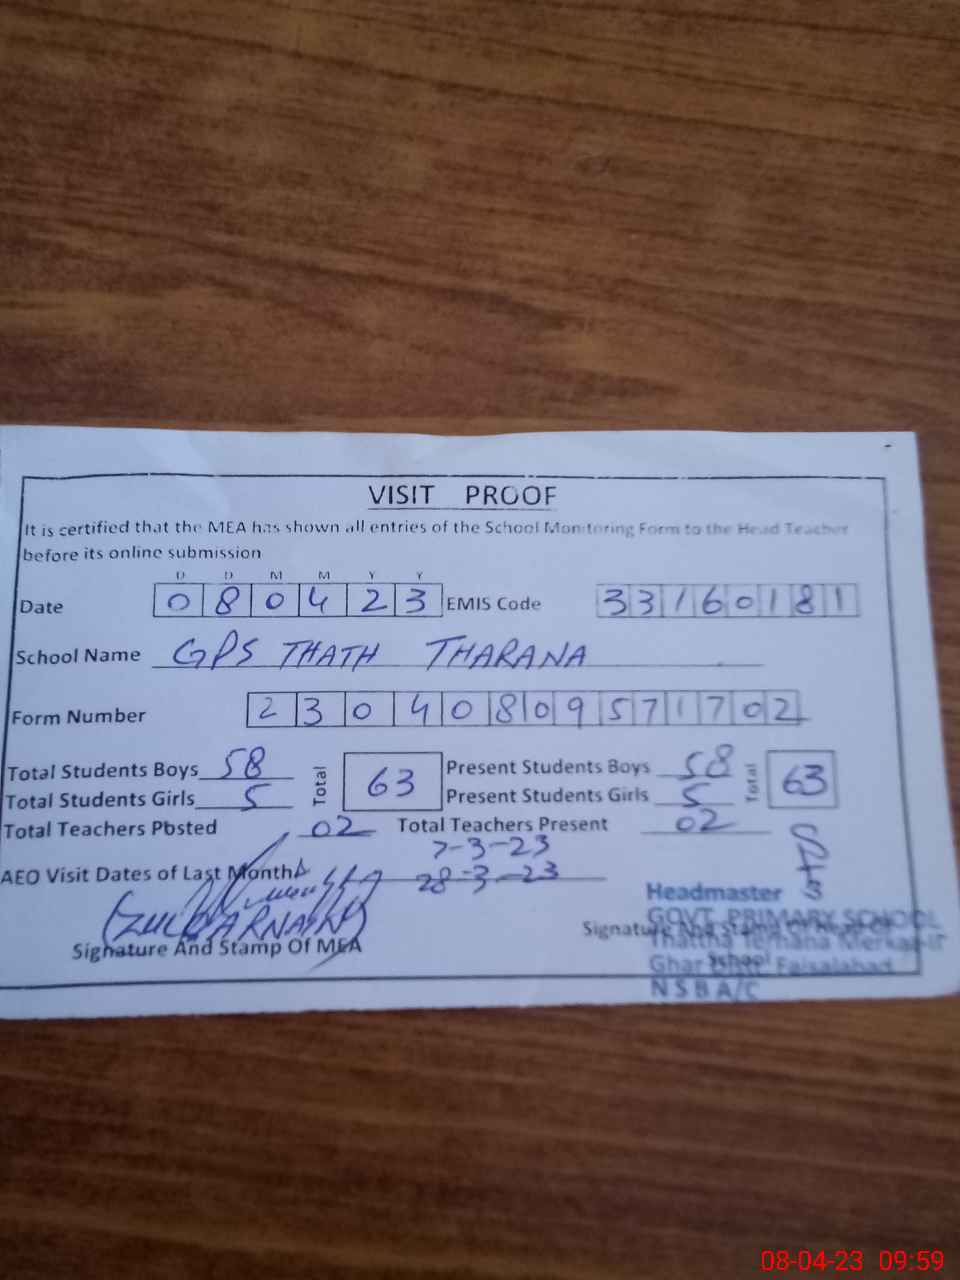 VISIT PROOF
It is certified that the MEA has shown all entries of the School Monitoring Form to the Head Teacher
before its online submission
D D M M Y Y
Date 0 8 0 4 2 3 EMIS Code 3 3 1 6 0 1 8 1
School Name GPS THATH THARANA
Form Number 2 3 0 4 0 8 0 9 5 7 1 7 0 2
Total Students Boys 58 Total 63 Present Students Boys 58 Total 63
Total Students Girls 5 Present Students Girls 5
Total Teachers Posted 02 Total Teachers Present 02
7-3-23
AEO Visit Dates of Last Month 28-3-23
(ZULQARNAIN)
Signature And Stamp Of MEA
Signature And Stamp Of Head Of
School
Headmaster
GOVT. PRIMARY SCHOOL
Thattha Terhana Merkaz
Ghar Distt. Faisalabad
N S B A/C
08-04-23 09:59